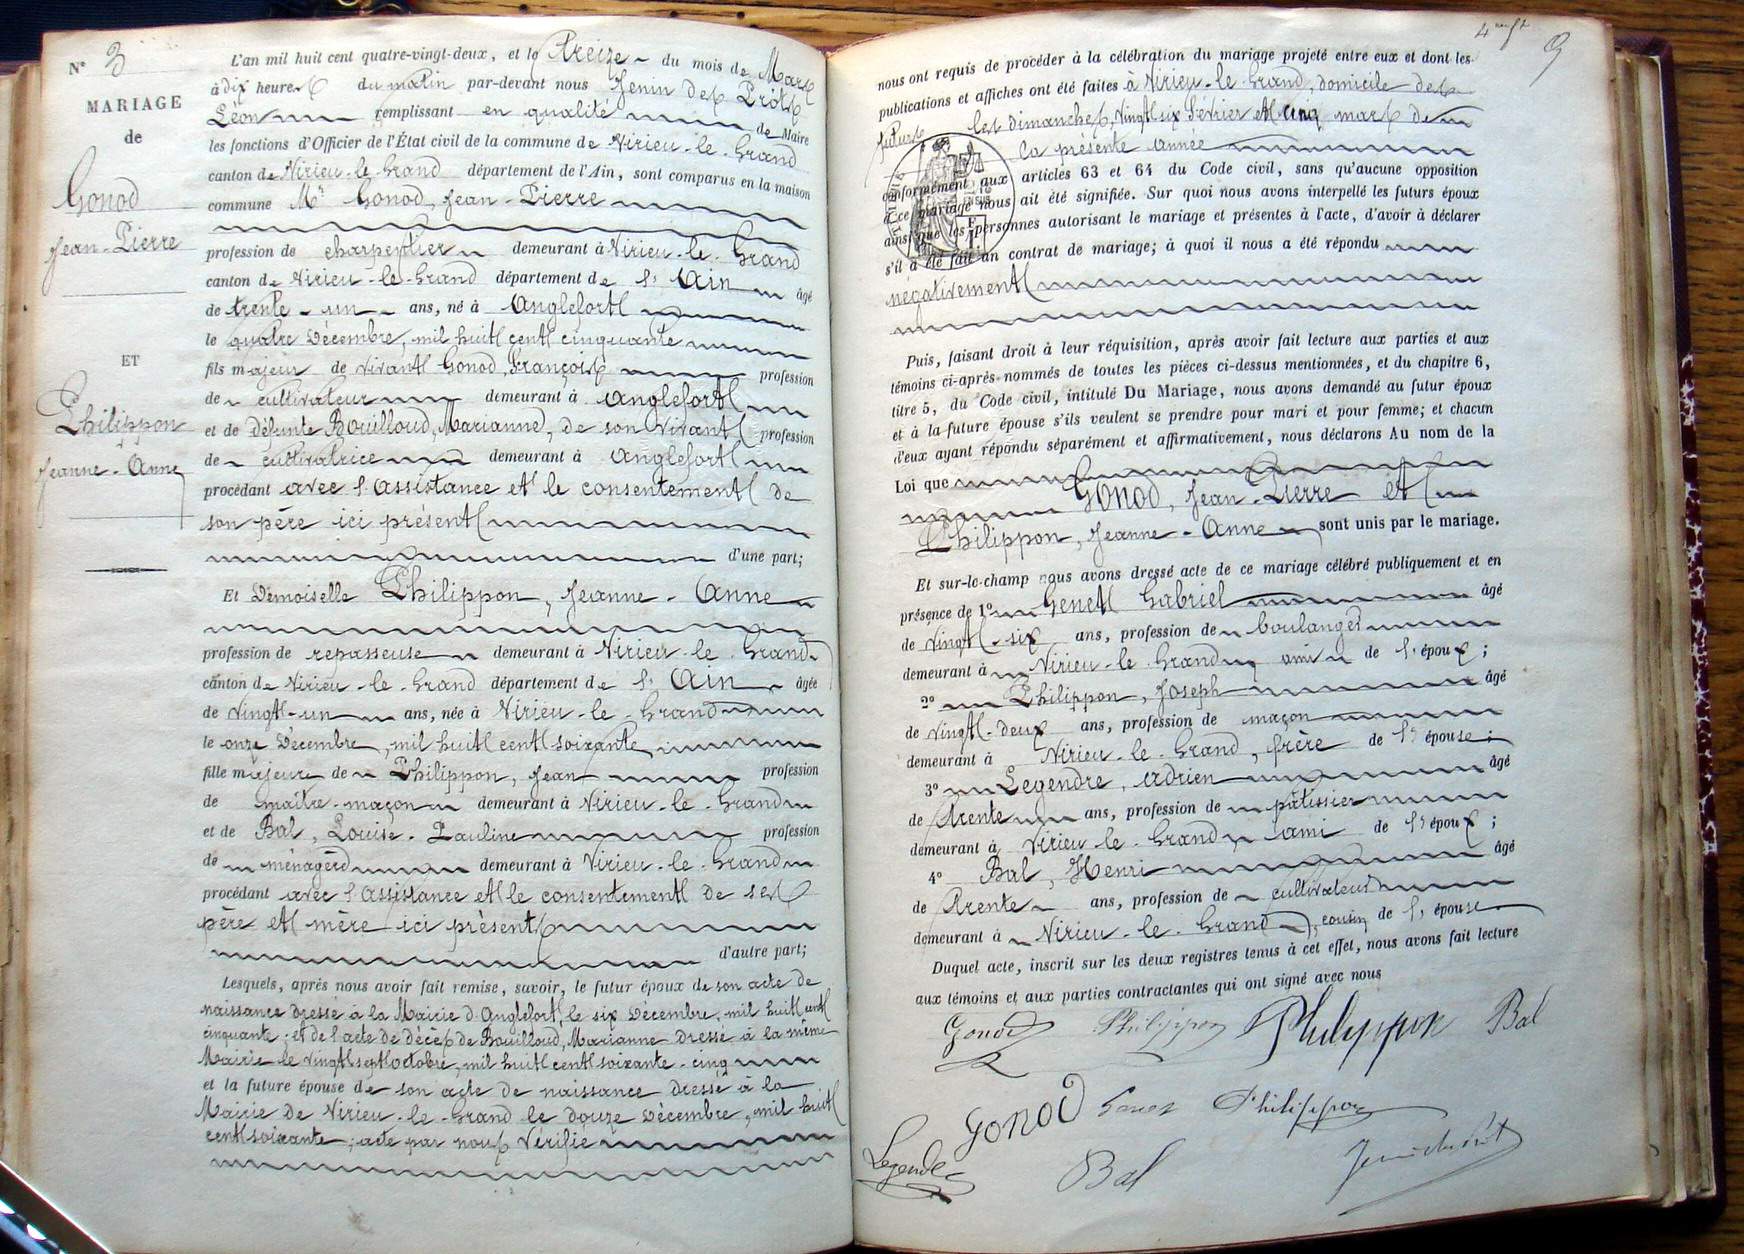 N° 3
MARIAGE
de
Gonod
Jean-Pierre
ET
Philippon
Jeanne-Anne
L'an mil huit cent quatre-vingt-deux, et le Treize du mois de Mars
à dix heures du matin par-devant nous Jenin des Prôts
Léon remplissant en qualité de Maire
les fonctions d'Officier de l'État civil de la commune de Virieu-le-Grand
canton de Virieu-le-Grand département de l'Ain, sont comparus en la maison
commune Mr Gonod, Jean-Pierre
profession de charpentier demeurant à Virieu-le-Grand
canton de Virieu-le-Grand département de l'Ain âgé
de trente-un ans, né à Anglefort
le quatre Décembre, mil huit cent cinquante
fils majeur de vivant Gonod, François profession
de cultivateur demeurant à Anglefort
et de défunte Bouilloud, Marianne, de son vivant profession
de cultivatrice demeurant à Anglefort
procédant avec l'assistance et le consentement de
son père ici présent
d'une part;
Et Demoiselle Philippon, Jeanne-Anne
profession de repasseuse demeurant à Virieu-le-Grand
canton de Virieu-le-Grand département de l'Ain âgée
de vingt-un ans, née à Virieu-le-Grand
le onze Décembre, mil huit cent soixante
fille majeure de Philippon, Jean profession
de maître-maçon demeurant à Virieu-le-Grand
et de Bal, Louise-Pauline profession
de ménagère demeurant à Virieu-le-Grand
procédant avec l'assistance et le consentement de ses
père et mère ici présents
d'autre part;
Lesquels, après nous avoir fait remise, savoir, le futur époux de son acte de
naissance dressé à la Mairie d'Anglefort, le six Décembre, mil huit cent
cinquante; et de l'acte de décès de Bouilloud, Marianne dressé à la même
Mairie le vingt sept octobre, mil huit cent soixante-cinq
et la future épouse de son acte de naissance dressé à la
Mairie de Virieu-le-Grand le douze Décembre, mil huit
cent soixante; acte par nous vérifié
9
nous ont requis de procéder à la célébration du mariage projeté entre eux et dont les
publications et affiches ont été faites à Virieu-le-Grand, domicile des
futurs les dimanches, vingt six Février et cinq mars de
la présente année
conformément aux articles 63 et 64 du Code civil, sans qu'aucune opposition
à ce mariage nous ait été signifiée. Sur quoi nous avons interpellé les futurs époux
ainsi que les personnes autorisant le mariage et présentes à l'acte, d'avoir à déclarer
s'il a été fait un contrat de mariage; à quoi il nous a été répondu
négativement
Puis, faisant droit à leur réquisition, après avoir fait lecture aux parties et aux
témoins ci-après nommés de toutes les pièces ci-dessus mentionnées, et du chapitre 6,
titre 5, du Code civil, intitulé Du Mariage, nous avons demandé au futur époux
et à la future épouse s'ils veulent se prendre pour mari et pour femme; et chacun
d'eux ayant répondu séparément et affirmativement, nous déclarons Au nom de la
Loi que
Gonod, Jean-Pierre et
Philippon, Jeanne-Anne sont unis par le mariage.
Et sur-le-champ nous avons dressé acte de ce mariage célébré publiquement et en
présence de 1° Genet Gabriel âgé
de vingt-six ans, profession de boulanger
demeurant à Virieu-le-Grand ami de l'époux;
2° Philippon, Joseph âgé
de vingt-deux ans, profession de maçon
demeurant à Virieu-le-Grand, frère de l'épouse;
3° Legendre, Adrien âgé
de Trente ans, profession de pâtissier
demeurant à Virieu-le-Grand ami de l'époux;
4° Bal, Henri âgé
de Trente ans, profession de cultivateur
demeurant à Virieu-le-Grand, cousin de l'épouse.
Duquel acte, inscrit sur les deux registres tenus à cet effet, nous avons fait lecture
aux témoins et aux parties contractantes qui ont signé avec nous
Gonod Philippon Philippon Bal
Gonod Genet Philippon
Legendre Bal